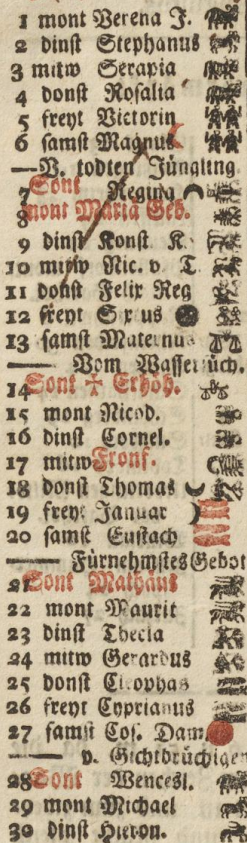 1 mont Verena J.
2 dinst Stephanus
3 mitw Serapia
4 donst Rosalia
5 freyt Victorin
6 samst Magnus
V. todten Jüngling
7 Sont Regina
8 mont Mariä Geb.
9 dinst Konst K.
10 mitw Nic. v T.
11 donst Felix Reg
12 freyt
13 samst Maternus
Vom Wassersüch.
14 Sont ☩ Erhöh.
15 mont Nicod.
16 dinst Cornel.
17 mitw Fronf.
18 donst Thomas
19 freyt Januar
20 samst Eustach
Fürnehmstes Gebot
21 Sont Mathäus
22 mont Maurit
23 dinst Thecla
24 mitw Gerardus
25 donst Cleophas
26 freyt Cyprianus
27 samst Cos. Dam.
v. Gichtbrüchigen
28 Sont Wencesl.
29 mont Michael
30 dinst Hieron.